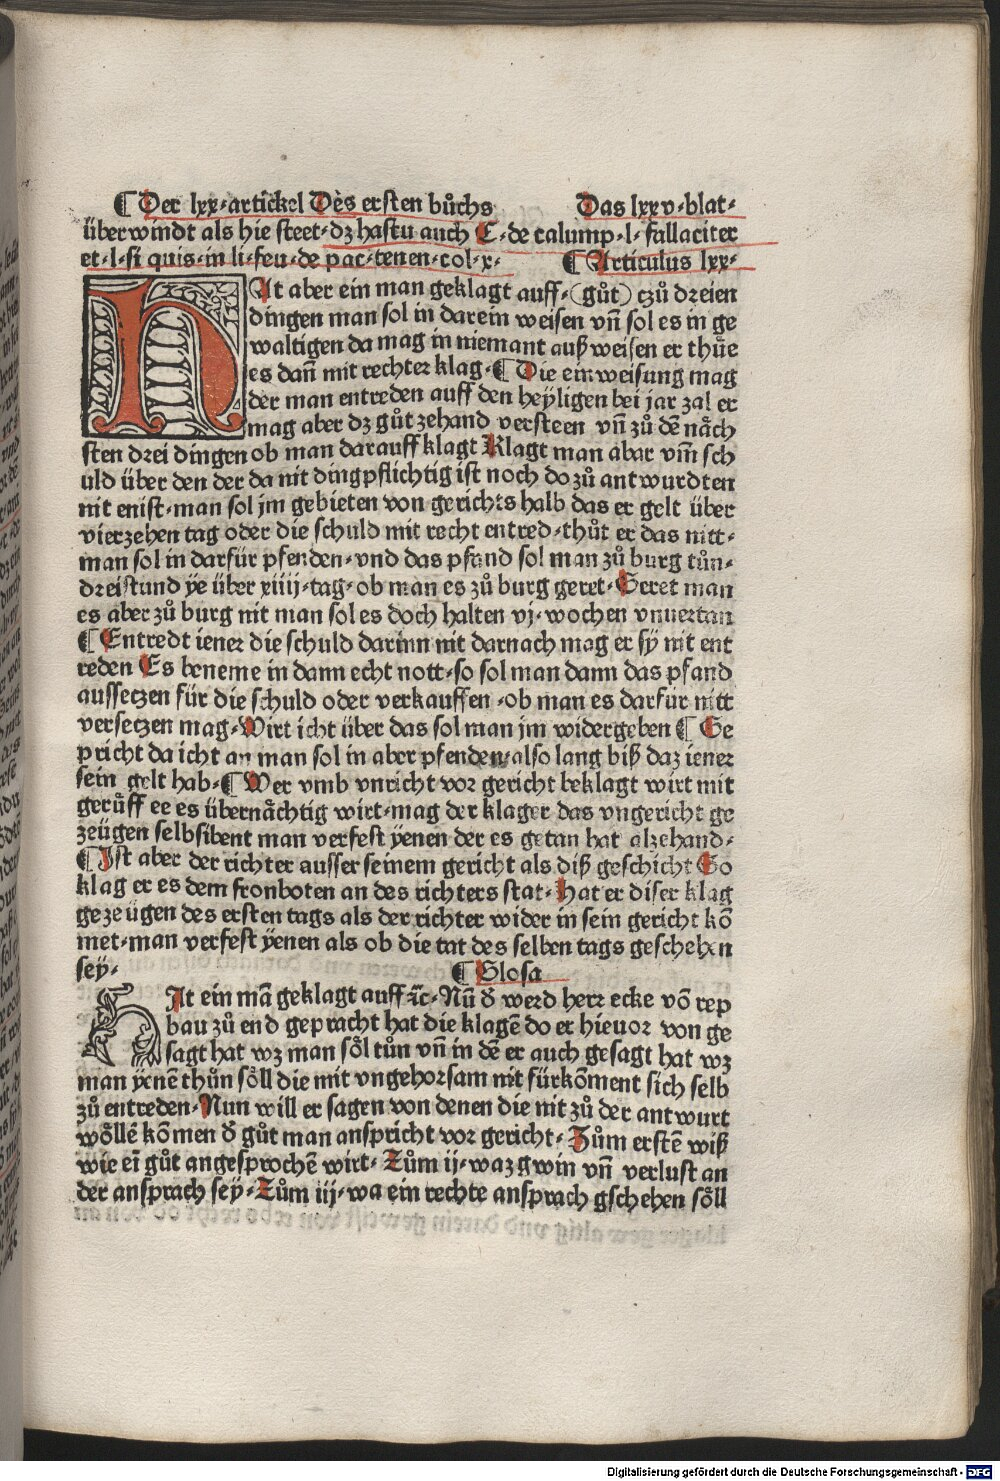 ¶ Der lxx· artickel Des ersten bůchs Das lxxv· blat·
überwindt als hie steet· dz hastu auch C· de calump· l· fallaciter
et· l· si quis· in li· feu· de pac· tenen· col· x· ¶ Articulus lxx·
HAt aber ein man geklagt auff· (gůt) czů dreien
dingen man sol in darein weisen vñ sol es in ge
waltigen da mag in niemant auß weisen er thüe
es dañ mit rechter klag· ¶ Die einweisung mag
der man entreden auff den heyligen bei jar zal er
mag aber dz gůt zehand versteen vñ zů dē näch
sten drei dingen ob man darauff klagt Klagt man abar vm̄ sch
uld über den der da nit dingpflichtig ist noch do zů antwurdten
nit enist· man sol jm gebieten von gerichts halb das er gelt über
vierzehen tag oder die schuld mit recht entred· thůt er das nitt·
man sol in darfür pfenden· vnd das pfand sol man zů burg tůn·
dreistund ÿe über xiiij· tag· ob man es zů burg geret· Geret man
es aber zů burg nit man sol es doch halten vj· wochen vnuertan
¶ Entredt iener die schuld darinn nit darnach mag er sÿ nit ent
reden Es beneme in dann echt nott· so sol man dann das pfand
aussetzen für die schuld oder verkauffen· ob man es darfür nitt
versetzen mag· Wirt icht über das sol man jm widergeben ¶ Ge
pricht da icht an man sol in aber pfenden also lang biß daz iener
sein gelt hab· ¶ Wer vmb vnricht vor gericht beklagt wirt mit
gerůff ee es übernächtig wirt· mag der klager das vngericht ge
zeügen selbsibent man verfest ÿenen der es getan hat alzehand·
¶ Ist aber der richter ausser seinem gericht als diß geschicht So
klag er es dem fronboten an des richters stat· Hat er diser klag
gezeügen des ersten tags als der richter wider in sein gericht kō
met· man verfest ÿenen als ob die tat des selben tags geschehen
sey· ¶ Glosa
HAt ein mā geklagt auff ꝛc· Nū ď werd herr ecke vō rep
bau zů end gepracht hat die klagē do er hieuor von ge
sagt hat wz man söl tůn vñ in dē er auch gesagt hat wz
man ÿenē thůn söll die mit vngehorsam nit fürkōment sich selb
zů entreden· Nun will er sagen von denen die nit zů der antwurt
wöllē kōmen ď gůt man anspricht vor gericht· Zům erstē wiß
wie eī gůt angesprochē wirt· Zům ij· waz gwin vñ verlust an
der ansprach sey· Zům iij· wa ein rechte ansprach gschehen söll
Digitalisierung gefördert durch die Deutsche Forschungsgemeinschaft - DFG